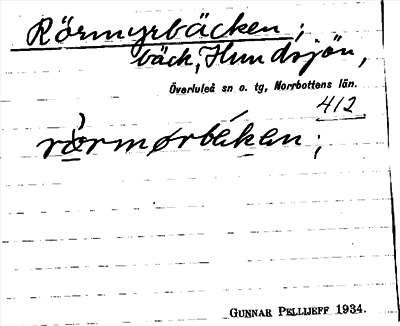 Rörmyrbäcken;
bäck, Hundsjön,
Överluleå sn o. tg, Norrbottens län.
412
GUNNAR PELLIJEFF 1934.